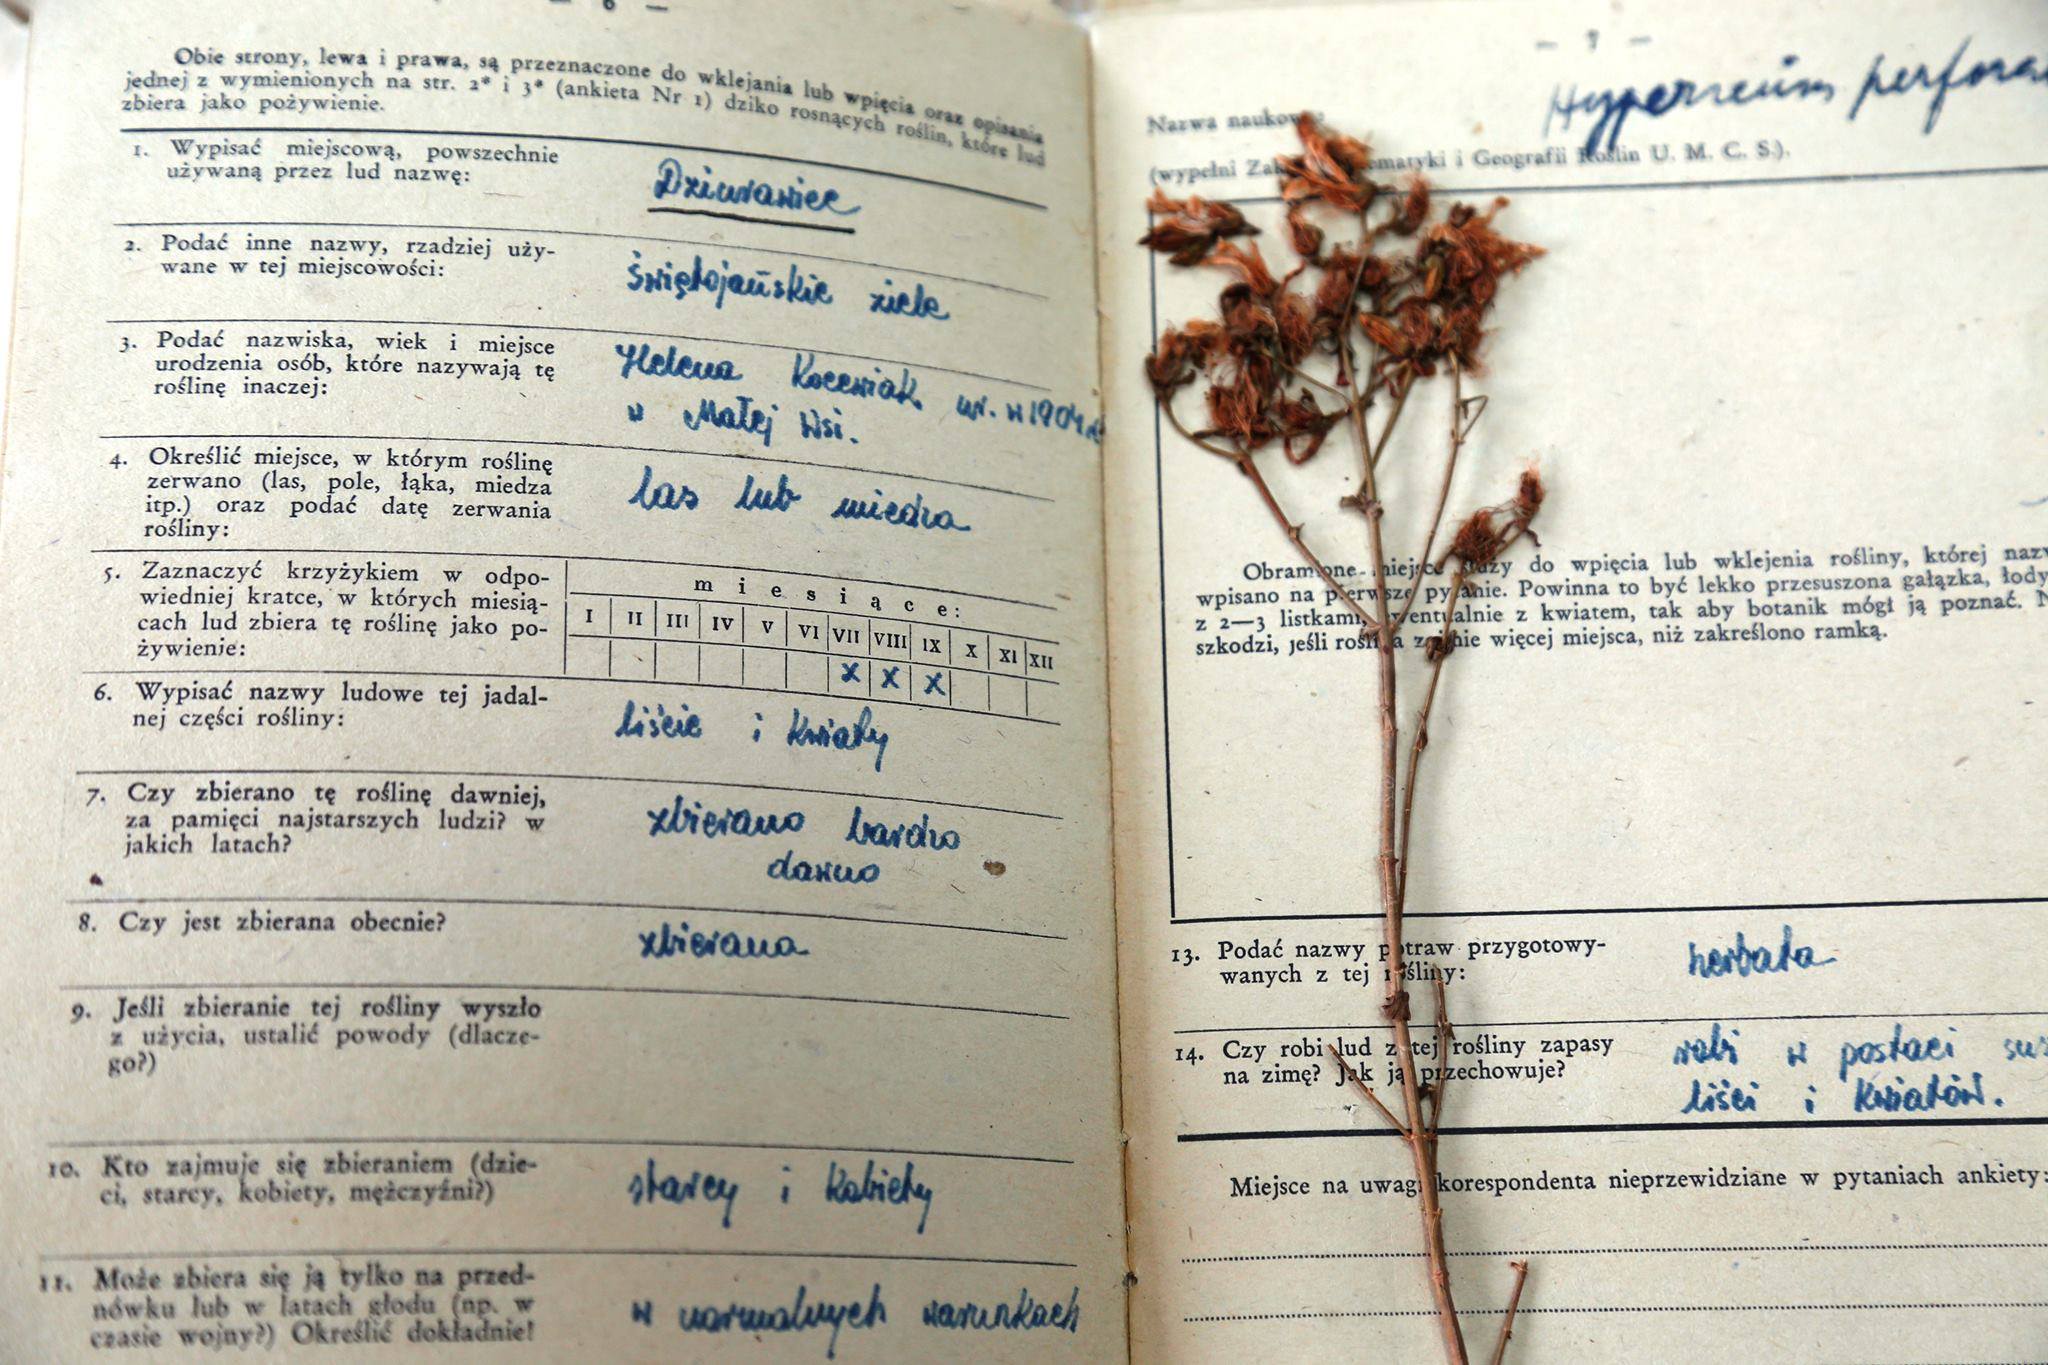 — 6 —
Obie strony, lewa i prawa, są przeznaczone do wklejania lub wpięcia oraz opisania
jednej z wymienionych na str. 2* i 3* (ankieta Nr 1) dziko rosnących roślin, które lud
zbiera jako pożywienie.
1. Wypisać miejscową, powszechnie
używaną przez lud nazwę:
Dziurawiec
2. Podać inne nazwy, rzadziej uży-
wane w tej miejscowości:
świętojańskie ziele
3. Podać nazwiska, wiek i miejsce
urodzenia osób, które nazywają tę
roślinę inaczej:
Helena Kocewiak ur. w 1904 r.
w Małej Wsi.
4. Określić miejsce, w którym roślinę
zerwano (las, pole, łąka, miedza
itp.) oraz podać datę zerwania
rośliny:
las lub miedza
5. Zaznaczyć krzyżykiem w odpo-
wiedniej kratce, w których miesią-
cach lud zbiera tę roślinę jako po-
żywienie:
miesiące:
I II III IV V VI VII VIII IX X XI XII
x x x
6. Wypisać nazwy ludowe tej jadal-
nej części rośliny:
liście i kwiaty
7. Czy zbierano tę roślinę dawniej,
za pamięci najstarszych ludzi? w
jakich latach?
zbierano bardzo
dawno
8. Czy jest zbierana obecnie?
zbierana
9. Jeśli zbieranie tej rośliny wyszło
z użycia, ustalić powody (dlacze-
go?)
10. Kto zajmuje się zbieraniem (dzie-
ci, starcy, kobiety, mężczyźni?)
starcy i kobiety
11. Może zbiera się ją tylko na przed-
nówku lub w latach głodu (np. w
czasie wojny?) Określić dokładnie!
w normalnych warunkach
— 7 —
Hypericum perfora
Nazwa naukowa:
(wypełni Zak ematyki i Geografii Roślin U. M. C. S.).
Obramione miejsce służy do wpięcia lub wklejenia rośliny, której nazw
wpisano na pierwsze pytanie. Powinna to być lekko przesuszona gałązka, łody
z 2—3 listkami, ewentualnie z kwiatem, tak aby botanik mógł ją poznać. N
szkodzi, jeśli roślina zajmie więcej miejsca, niż zakreślono ramką.
13. Podać nazwy potraw przygotowy-
wanych z tej rośliny:
herbata
14. Czy robi lud z tej rośliny zapasy
na zimę? Jak ją przechowuje?
robi w postaci sus
liści i kwiatów.
Miejsce na uwagi korespondenta nieprzewidziane w pytaniach ankiety: